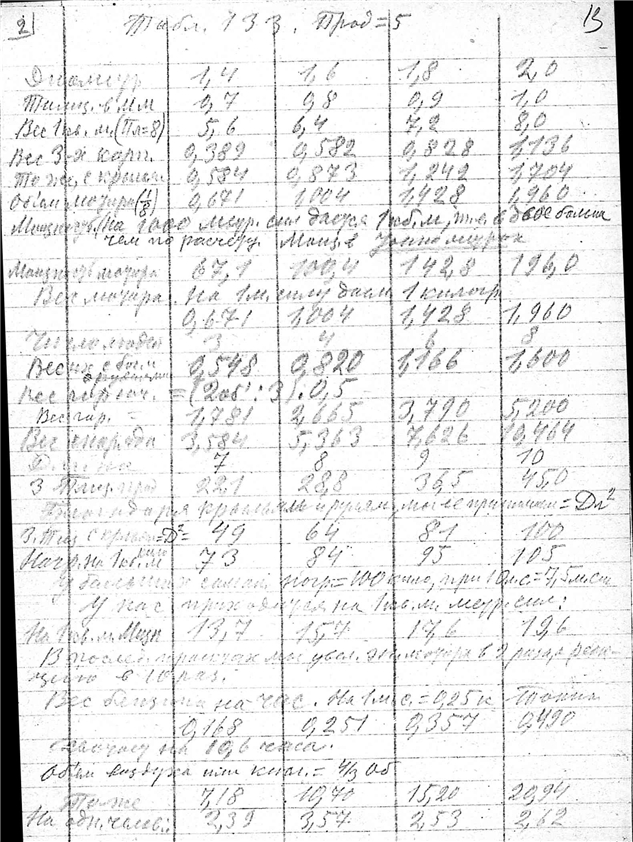 2 Табл. 133. Прод=5 13
Диаметр 1,4 1,6 1,8 2,0
Толщ. в мм 0,7 0,8 0,9 1,0
Вес 1 кв. м. (Пл=8) 5,6 6,4 7,2 8,0
Вес 3-х корп. 0,389 0,582 0,828 1,136
То же, с крыльями 0,584 0,873 1,242 1,704
Объем мотора (1/8) 0,671 1,004 1,428 1,960
На 1000 метр. сил дается 1 куб. м, т. е. в двое больше
чем по расчету. Мощ. в
Мощность мотора 67,1 100,4 142,8 196,0
Вес мотора. На 1 м. силу даем 1 килогр.
0,671 1,004 1,428 1,960
Число людей 3 4 6 8
Вес их с 0,548 0,820 1,166 1,600
Вес гор = (2об : 3) . 0,5
Вес гор. = 1,781 2,665 3,790 5,200
Вес снаряда 3,584 5,363 7,626 10,464
Длина 7 8 9 10
3 Площ. 22,1 28,8 36,5 45,0
Благодаря крыльям и рулям, мы ее примем = Dл²
3. Площ с крыл=D²= 49 64 81 100
Нагр. на 1 кв. м 73 84 95 105
У больших самол. нагр.=100 кило, при 10 м.с=7,5 м.сил
У нас приходится на 1 кв. м. метр. сил:
На 1 кв. м. Мощн 13,7 15,7 17,6 19,6
В мы увел. эн. мотора в 2 раза,
в 10 раз.
Вес бензина на час. На 1 м.с.=0,25 к
0,168 0,251 0,357 0,490
на 10,6 часа.
Объем воздуха или кисл. = 4/3 Об
То же 7,18 10,70 15,20 20,94
На одн. челов.: 2,39 3,57 2,53 2,62